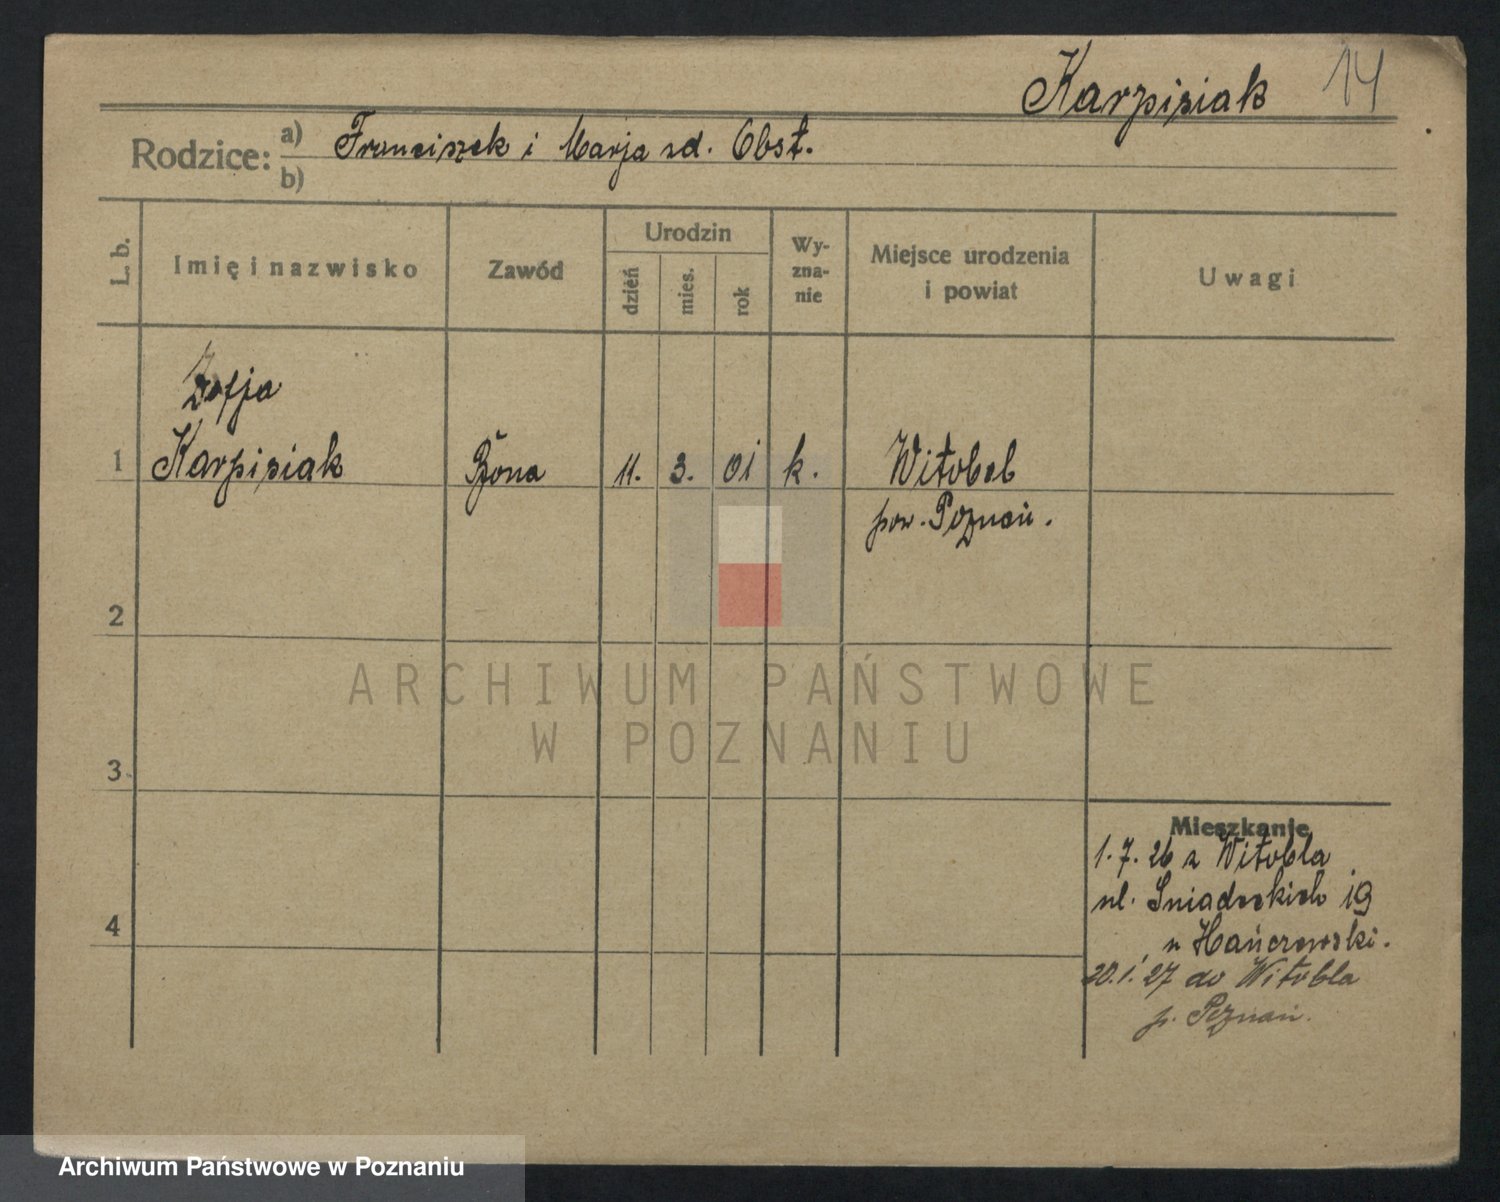 Karpisiak 14
Rodzice: a) Franciszek i Marja zd. Obst.
b)
L. b.
Imię i nazwisko
Zawód
Urodzin
dzień
mies.
rok
Wy-
zna-
nie
Miejsce urodzenia
i powiat
Uwagi
Zofja
1 Karpisiak 11. 3. 01 k. Witobel
pow. Poznań.
2
ARCHIWUM PAŃSTWOWE
W POZNANIU
3
Mieszkanie
1.7.26 z Witobla
ul. Śniadeckich 19
u Hańczewski.
4
20.1.27 do Witobla
p. Poznań.
Archiwum Państwowe w Poznaniu